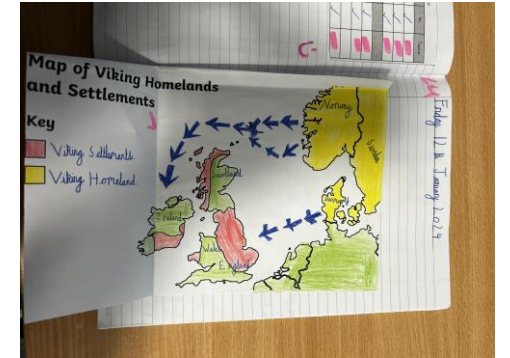 Map of Viking Homelands
and Settlements
Key
Viking Settlements
Viking Homeland
Norway
Sweden
Scotland
Denmark
Ireland
Wales
England
Friday 12th January 2024